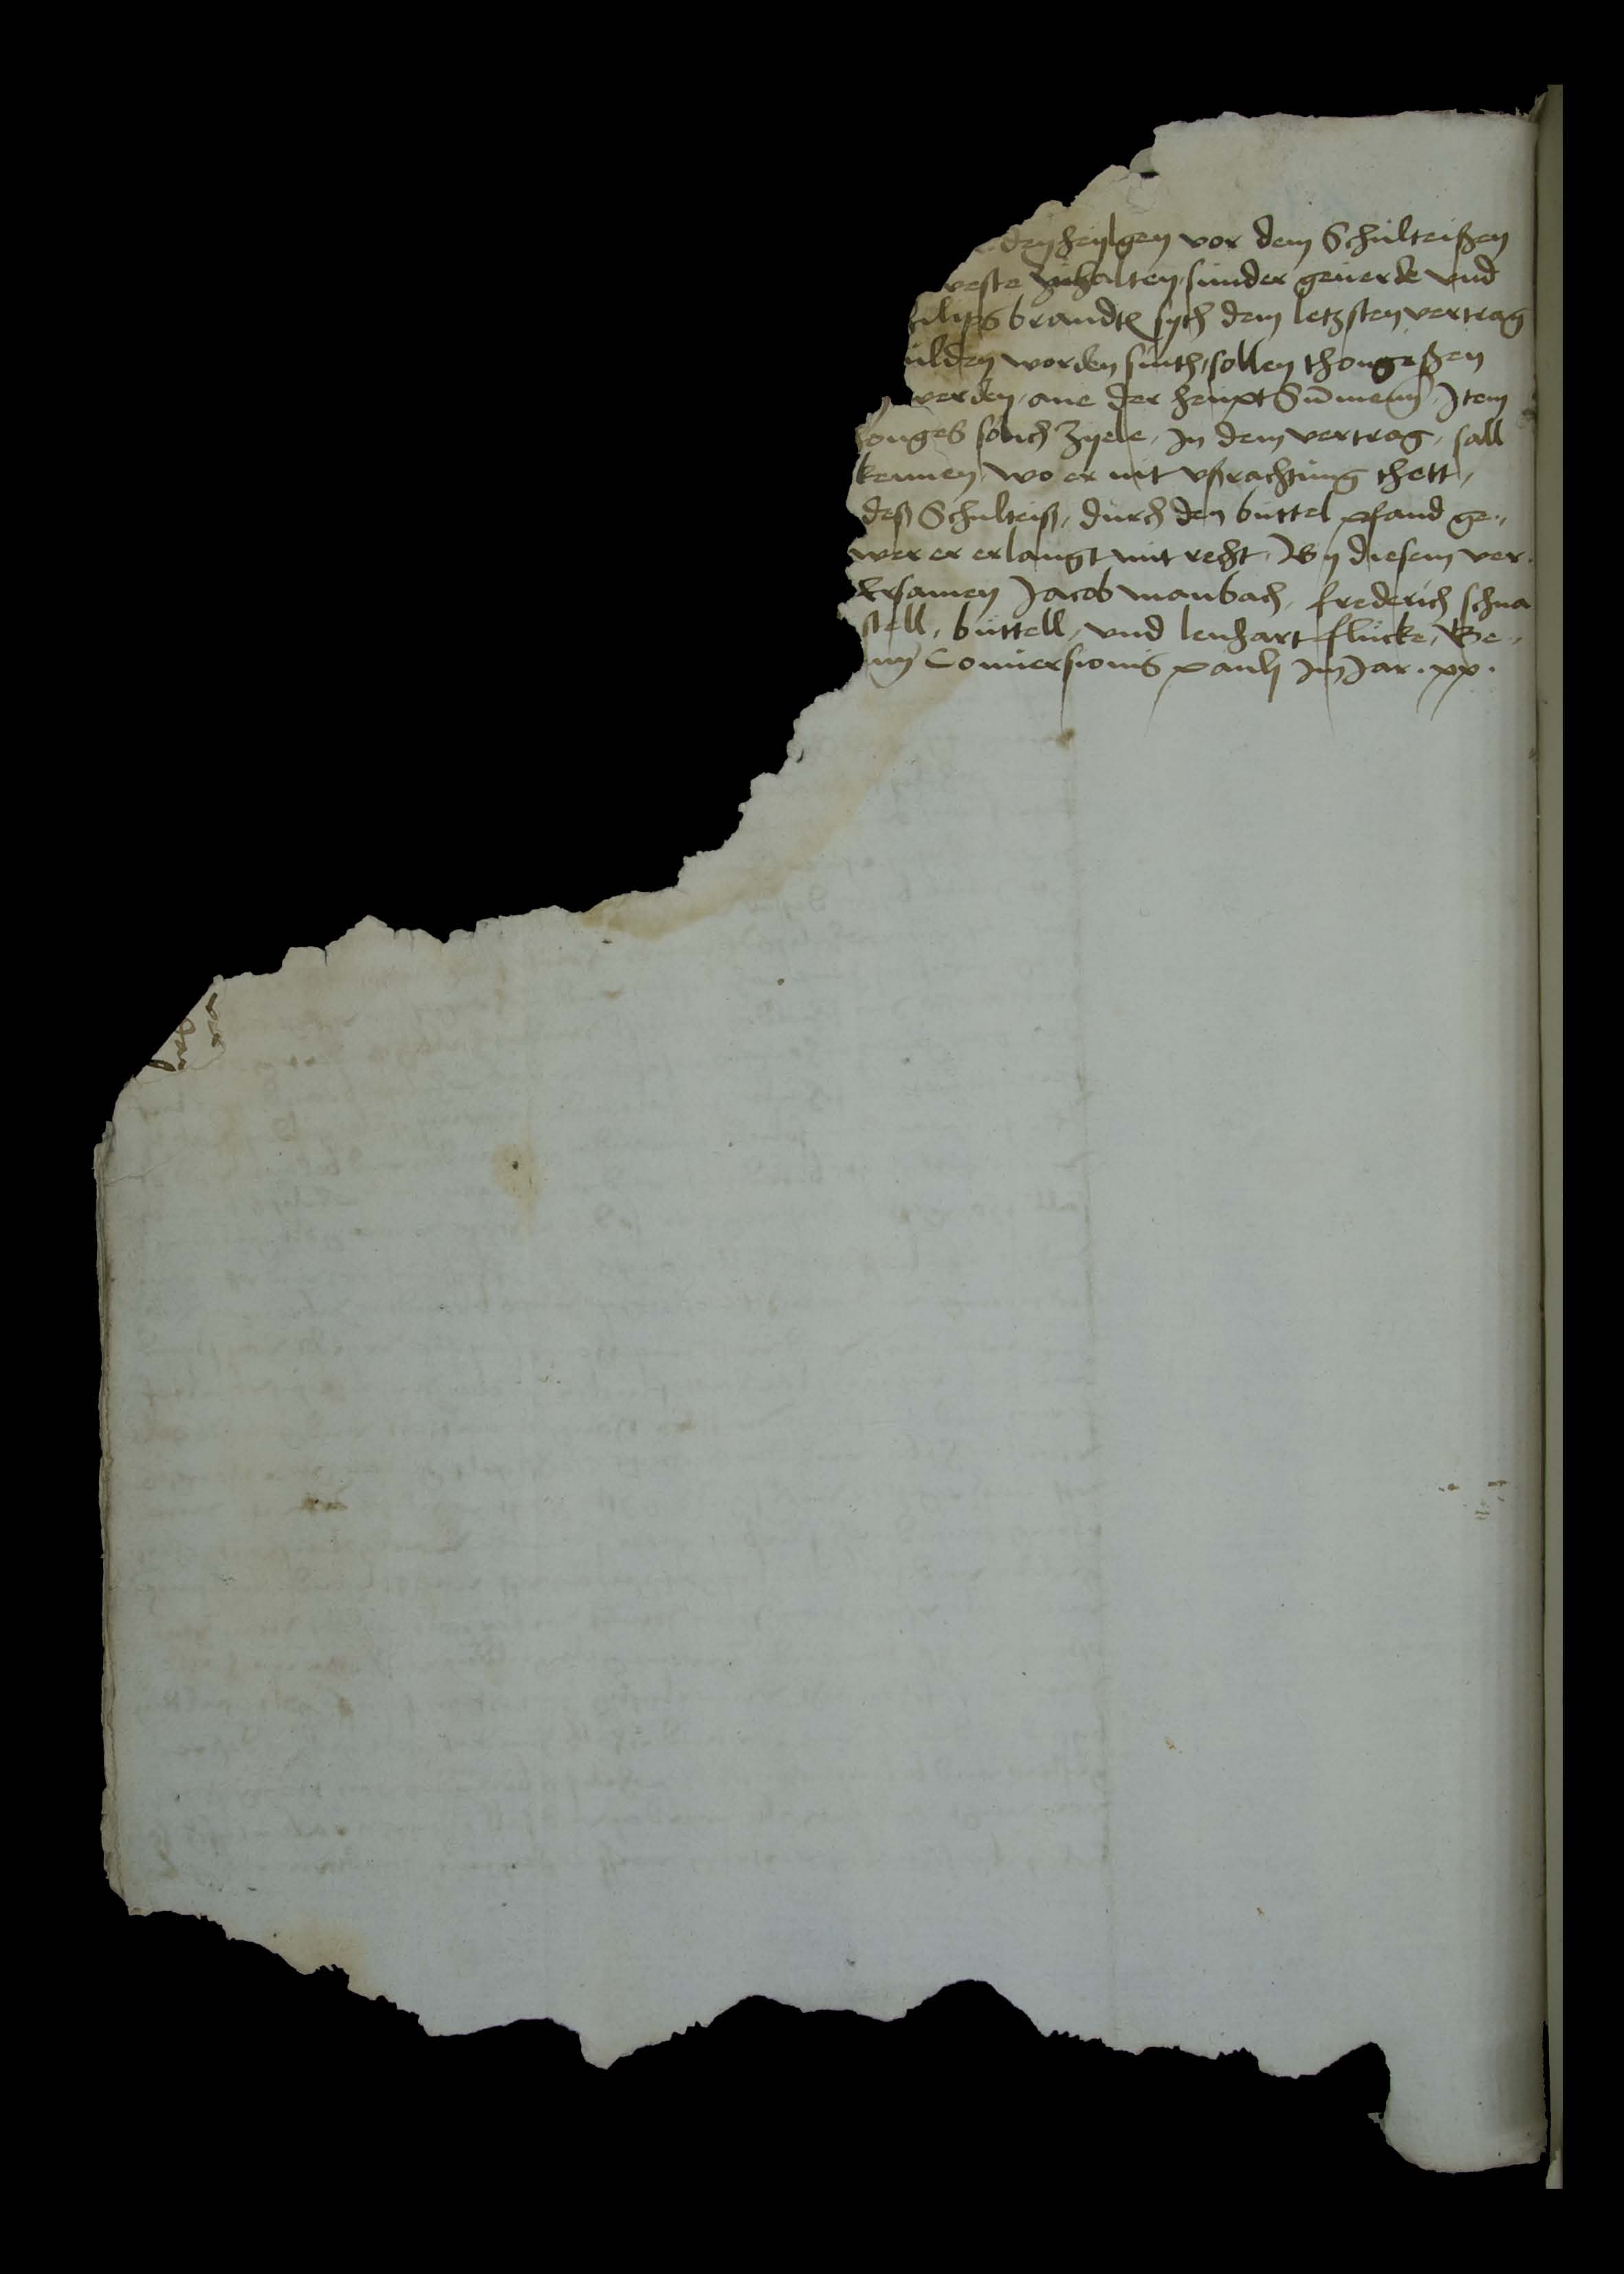 den heylgen vor dem Schulteißen
veste zuhalten, sunder geuerde vnd
hilips brandts syth dem letzsten vertrag
ulden worden sinth, sollen thongeßen
werden, ane der heuptSumenn, Jtem
onges solich Zyele, Jn dem vertrag, sall
kennen, wo er nit vßrachtung thett,
deß Schulteiß, durch den büttel pfand ge„
wer er erlangt mit recht, By diesem ver„
Ersamen Jacob manbach, frederich schna
stell, büttell, vnd lenhart flucke, Ge„
Conuersionis pauli Jm Jar . xx .